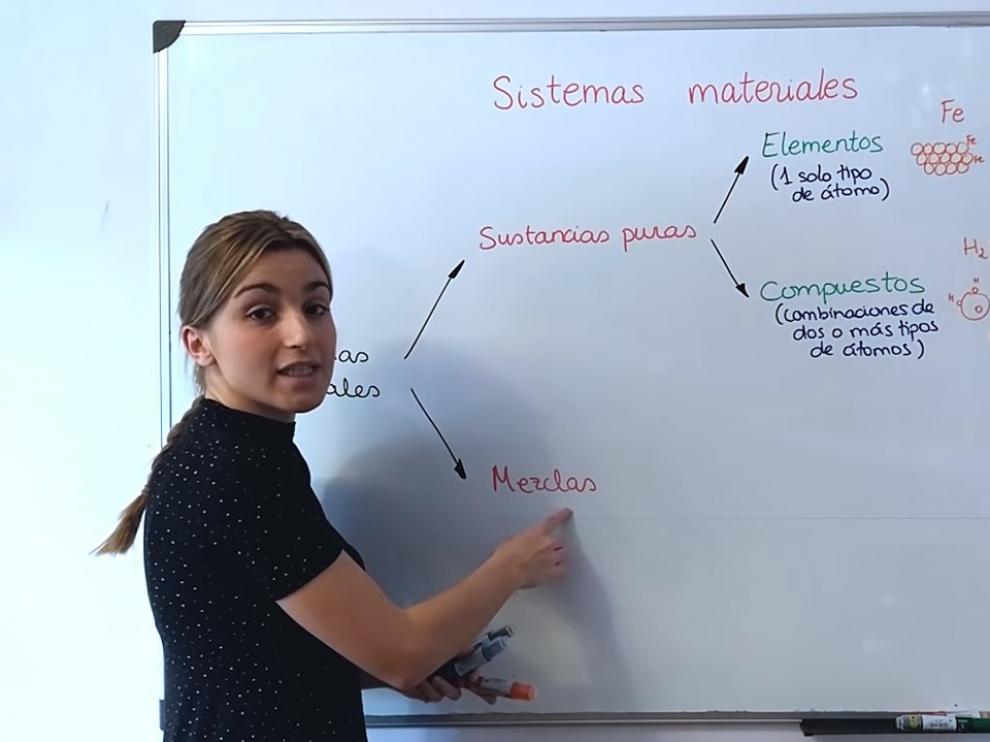 Sistemas materiales
Fe
Elementos
Fe
Fe
(1 solo tipo
de átomo)
Sustancias puras
H₂
Compuestos
H
H
O
(combinaciones de
dos o más tipos
de átomos)
as
ales
Mezclas